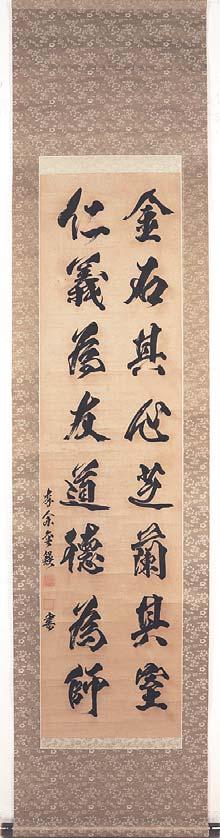 金石其心芝蘭其室
仁義為友道德為師
書